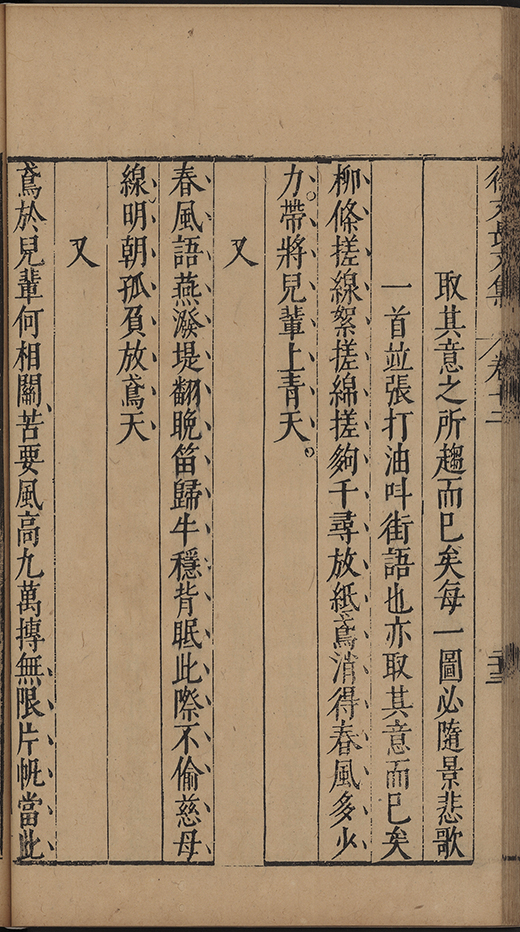 徐文長文集 卷十二 二十三
取其意之所趨而已矣每一圖必隨景悲歌
一首並張打油叫街語也亦取其意而已矣
柳條搓線絮搓綿搓夠千尋放紙鳶消得春風多少
力帶將兒輩上青天
又
春風語燕潑堤翻晚笛歸牛穩背眠此際不偷慈母
線明朝孤負放鳶天
又
鳶於兒輩何相關苦要風高九萬摶無限片帆當此